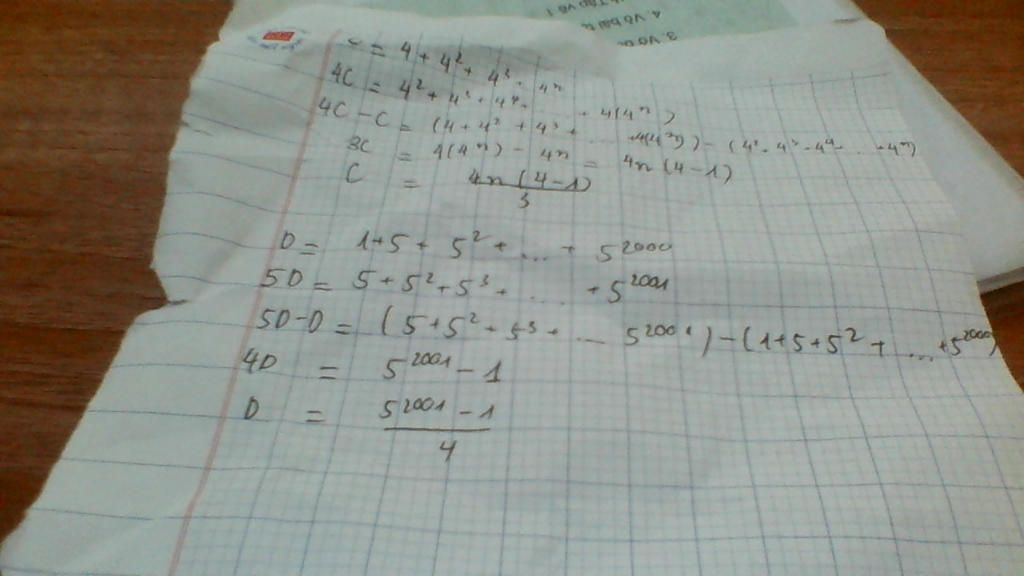 C = 4 + 4² + 4³ + 4ⁿ
4C = 4² + 4³ + 4⁴ . . . . + 4(4ⁿ)
4C - C = (4 + 4² + 4³ + . . . +4(4ⁿ)) - (4² + 4³ + 4⁴ + . . + 4ⁿ)
3C = 4(4ⁿ) - 4ⁿ = 4n(4-1)
C = 4n(4-1)
3
D = 1+5 + 5² + ... + 5²⁰⁰⁰
5D = 5 + 5² + 5³ + .... + 5²⁰⁰¹
5D-D = (5 + 5² + 5³ + ... 5²⁰⁰¹) - (1+5+5² + ... +5²⁰⁰⁰)
4D = 5²⁰⁰¹ - 1
D = 5²⁰⁰¹ - 1
4